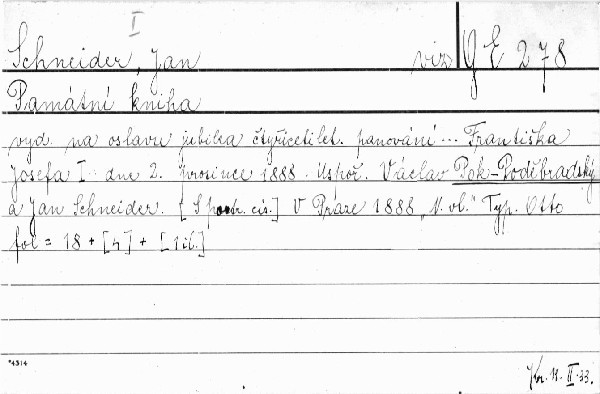 I
Schneider, Jan viz G E 278
Památní kniha
vyd. na oslavu jubilea čtyřicetilet. panování ... Františka
Josefa I. dne 2. prosince 1888. Uspoř. Václav Pok-Poděbradský
a Jan Schneider. [S portr. cís.] V Praze 1888 „N. vl.“ Typ. Otto
fol = 18 + [4] + [1 il.]
*4314
II. 33.